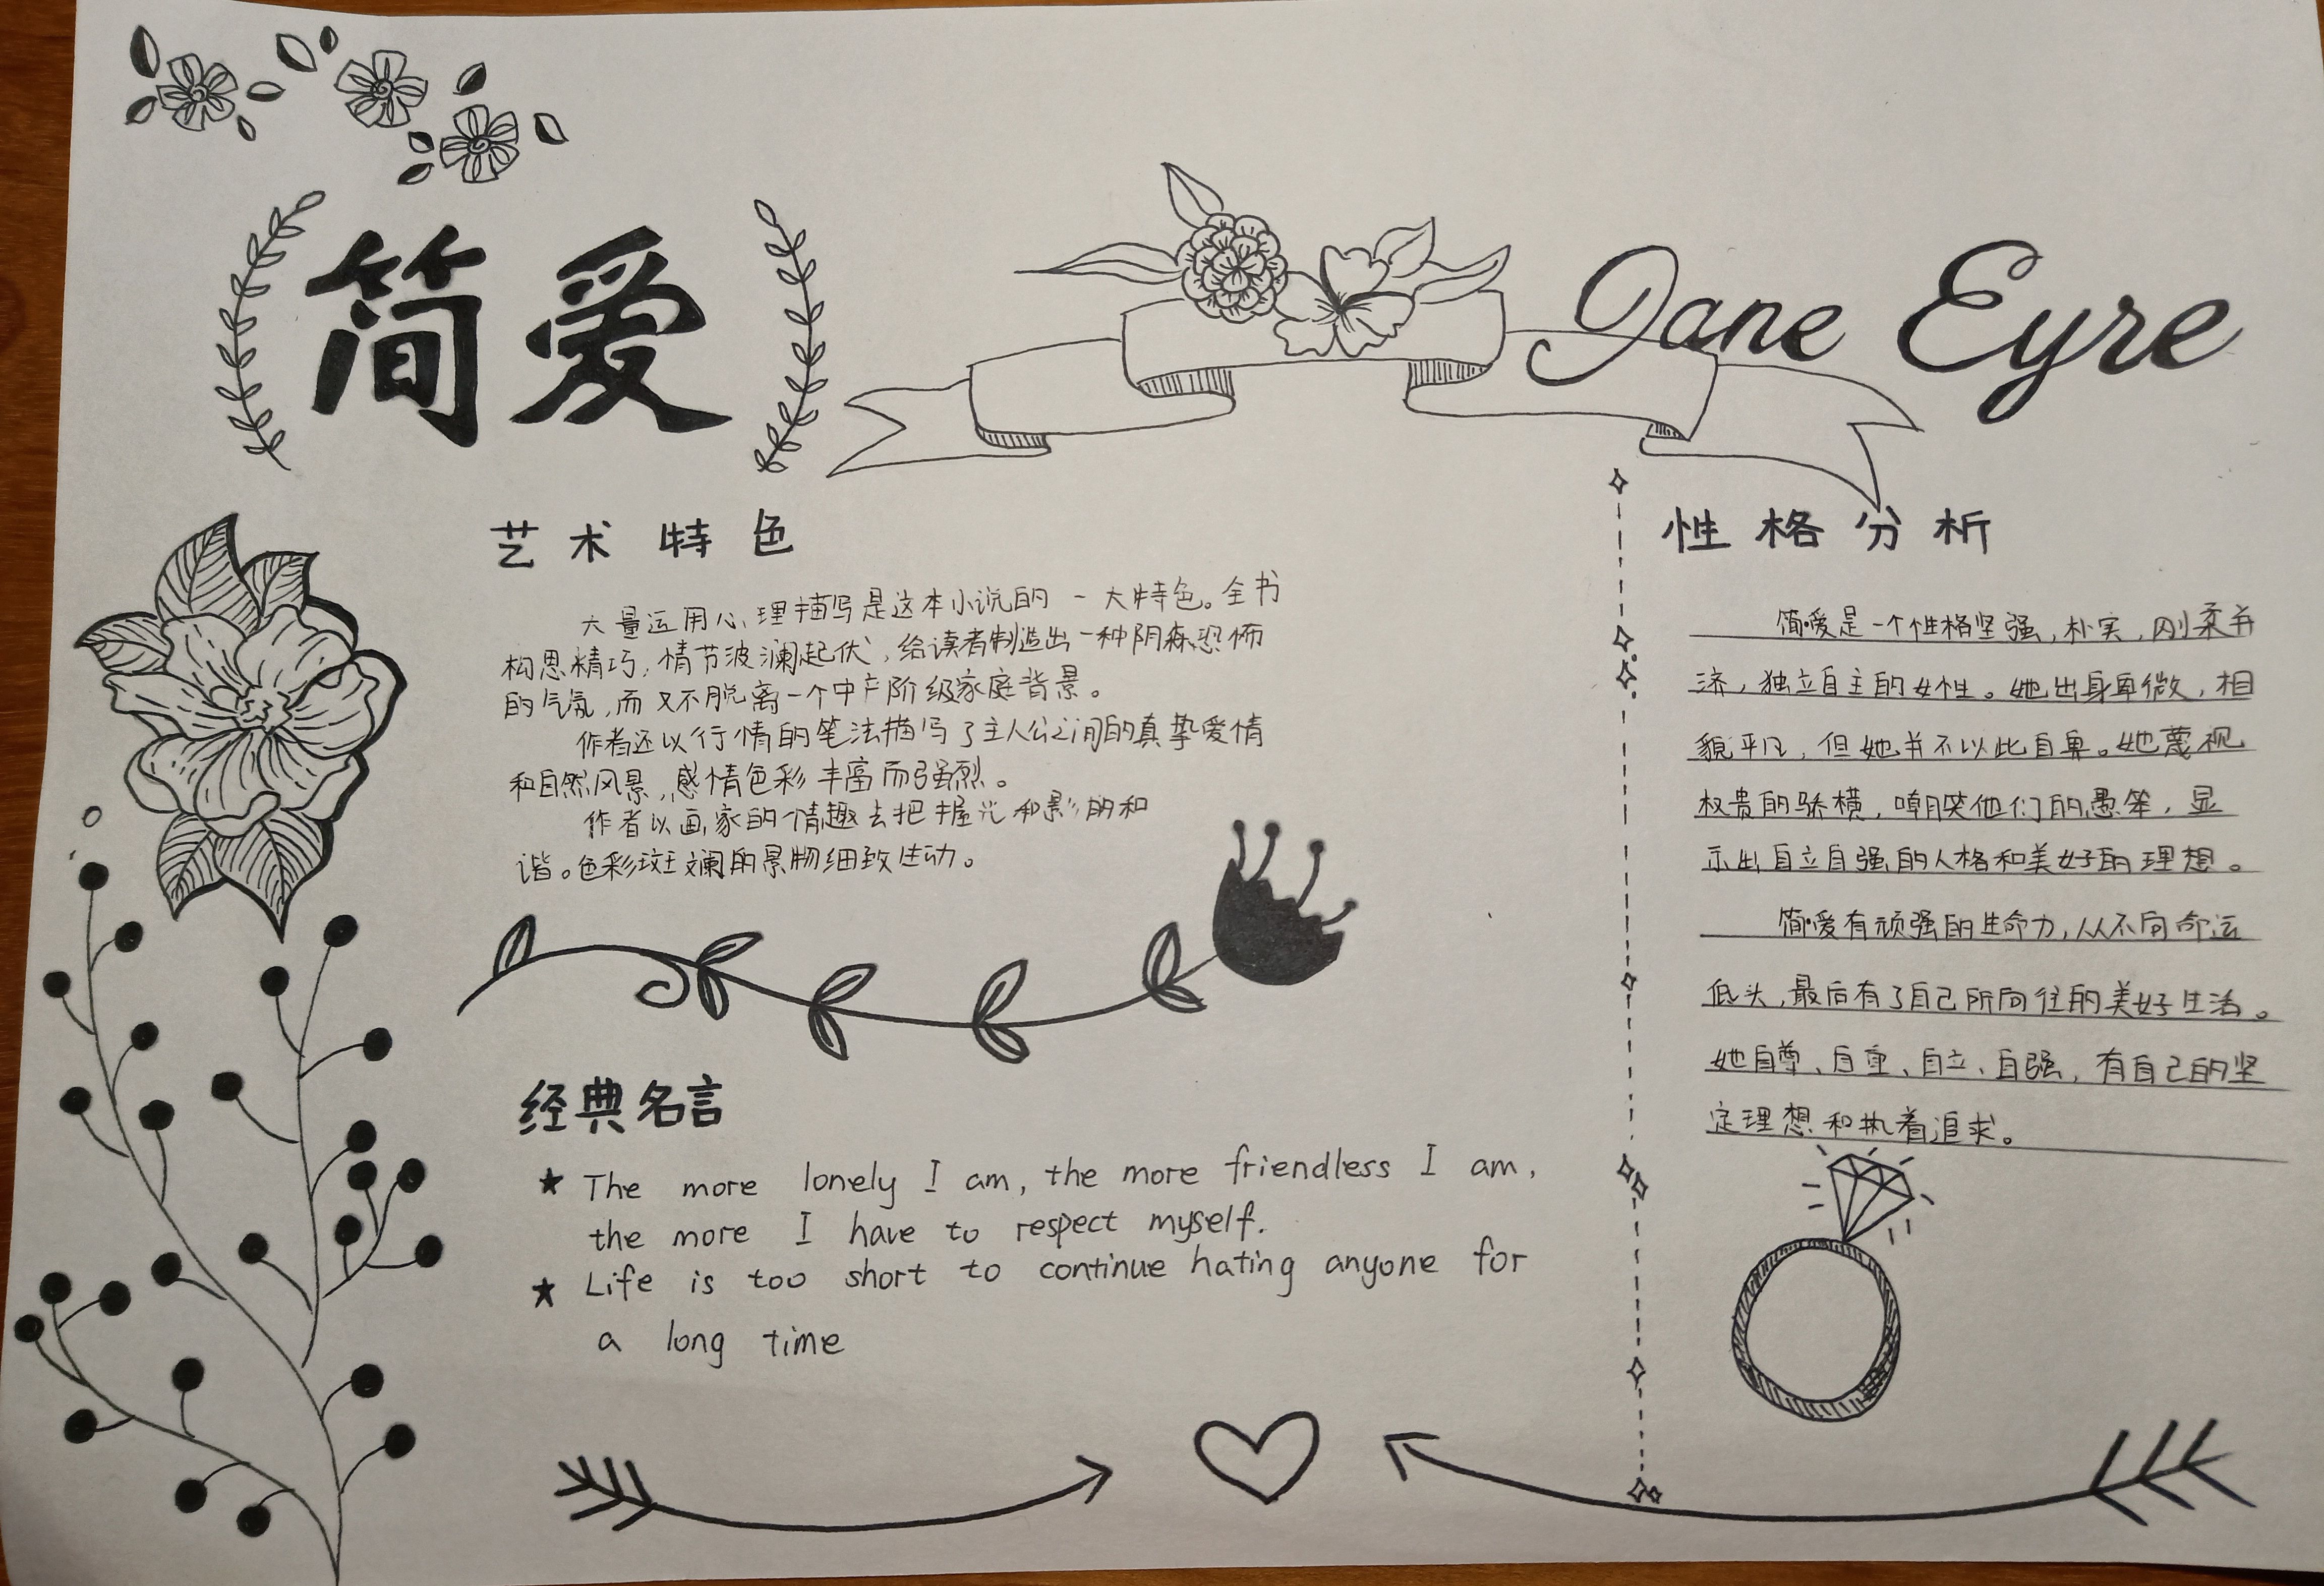 简爱
Jane Eyre
艺术特色
大量运用心理描写是这本小说的一大特色。全书
构思精巧，情节波澜起伏，给读者制造出一种阴森恐怖
的气氛，而又不脱离一个中产阶级家庭背景。
作者还以行情的笔法描写了主人公之间的真挚爱情
和自然风景，感情色彩丰富而强烈。
作者以画家的情趣去把握光和影的和
谐。色彩斑斓的景物细致生动。
经典名言
★ The more lonely I am, the more friendless I am,
the more I have to respect myself.
★ Life is too short to continue hating anyone for
a long time
性格分析
简爱是一个性格坚强，朴实，刚柔并
济，独立自主的女性。她出身卑微，相
貌平凡，但她并不以此自卑。她蔑视
权贵的骄横，嘲笑他们的愚笨，显
示出自立自强的人格和美好的理想。
简爱有顽强的生命力，从不向命运
低头，最后有了自己所向往的美好生活。
她自尊、自重、自立、自强，有自己的坚
定理想和执着追求。